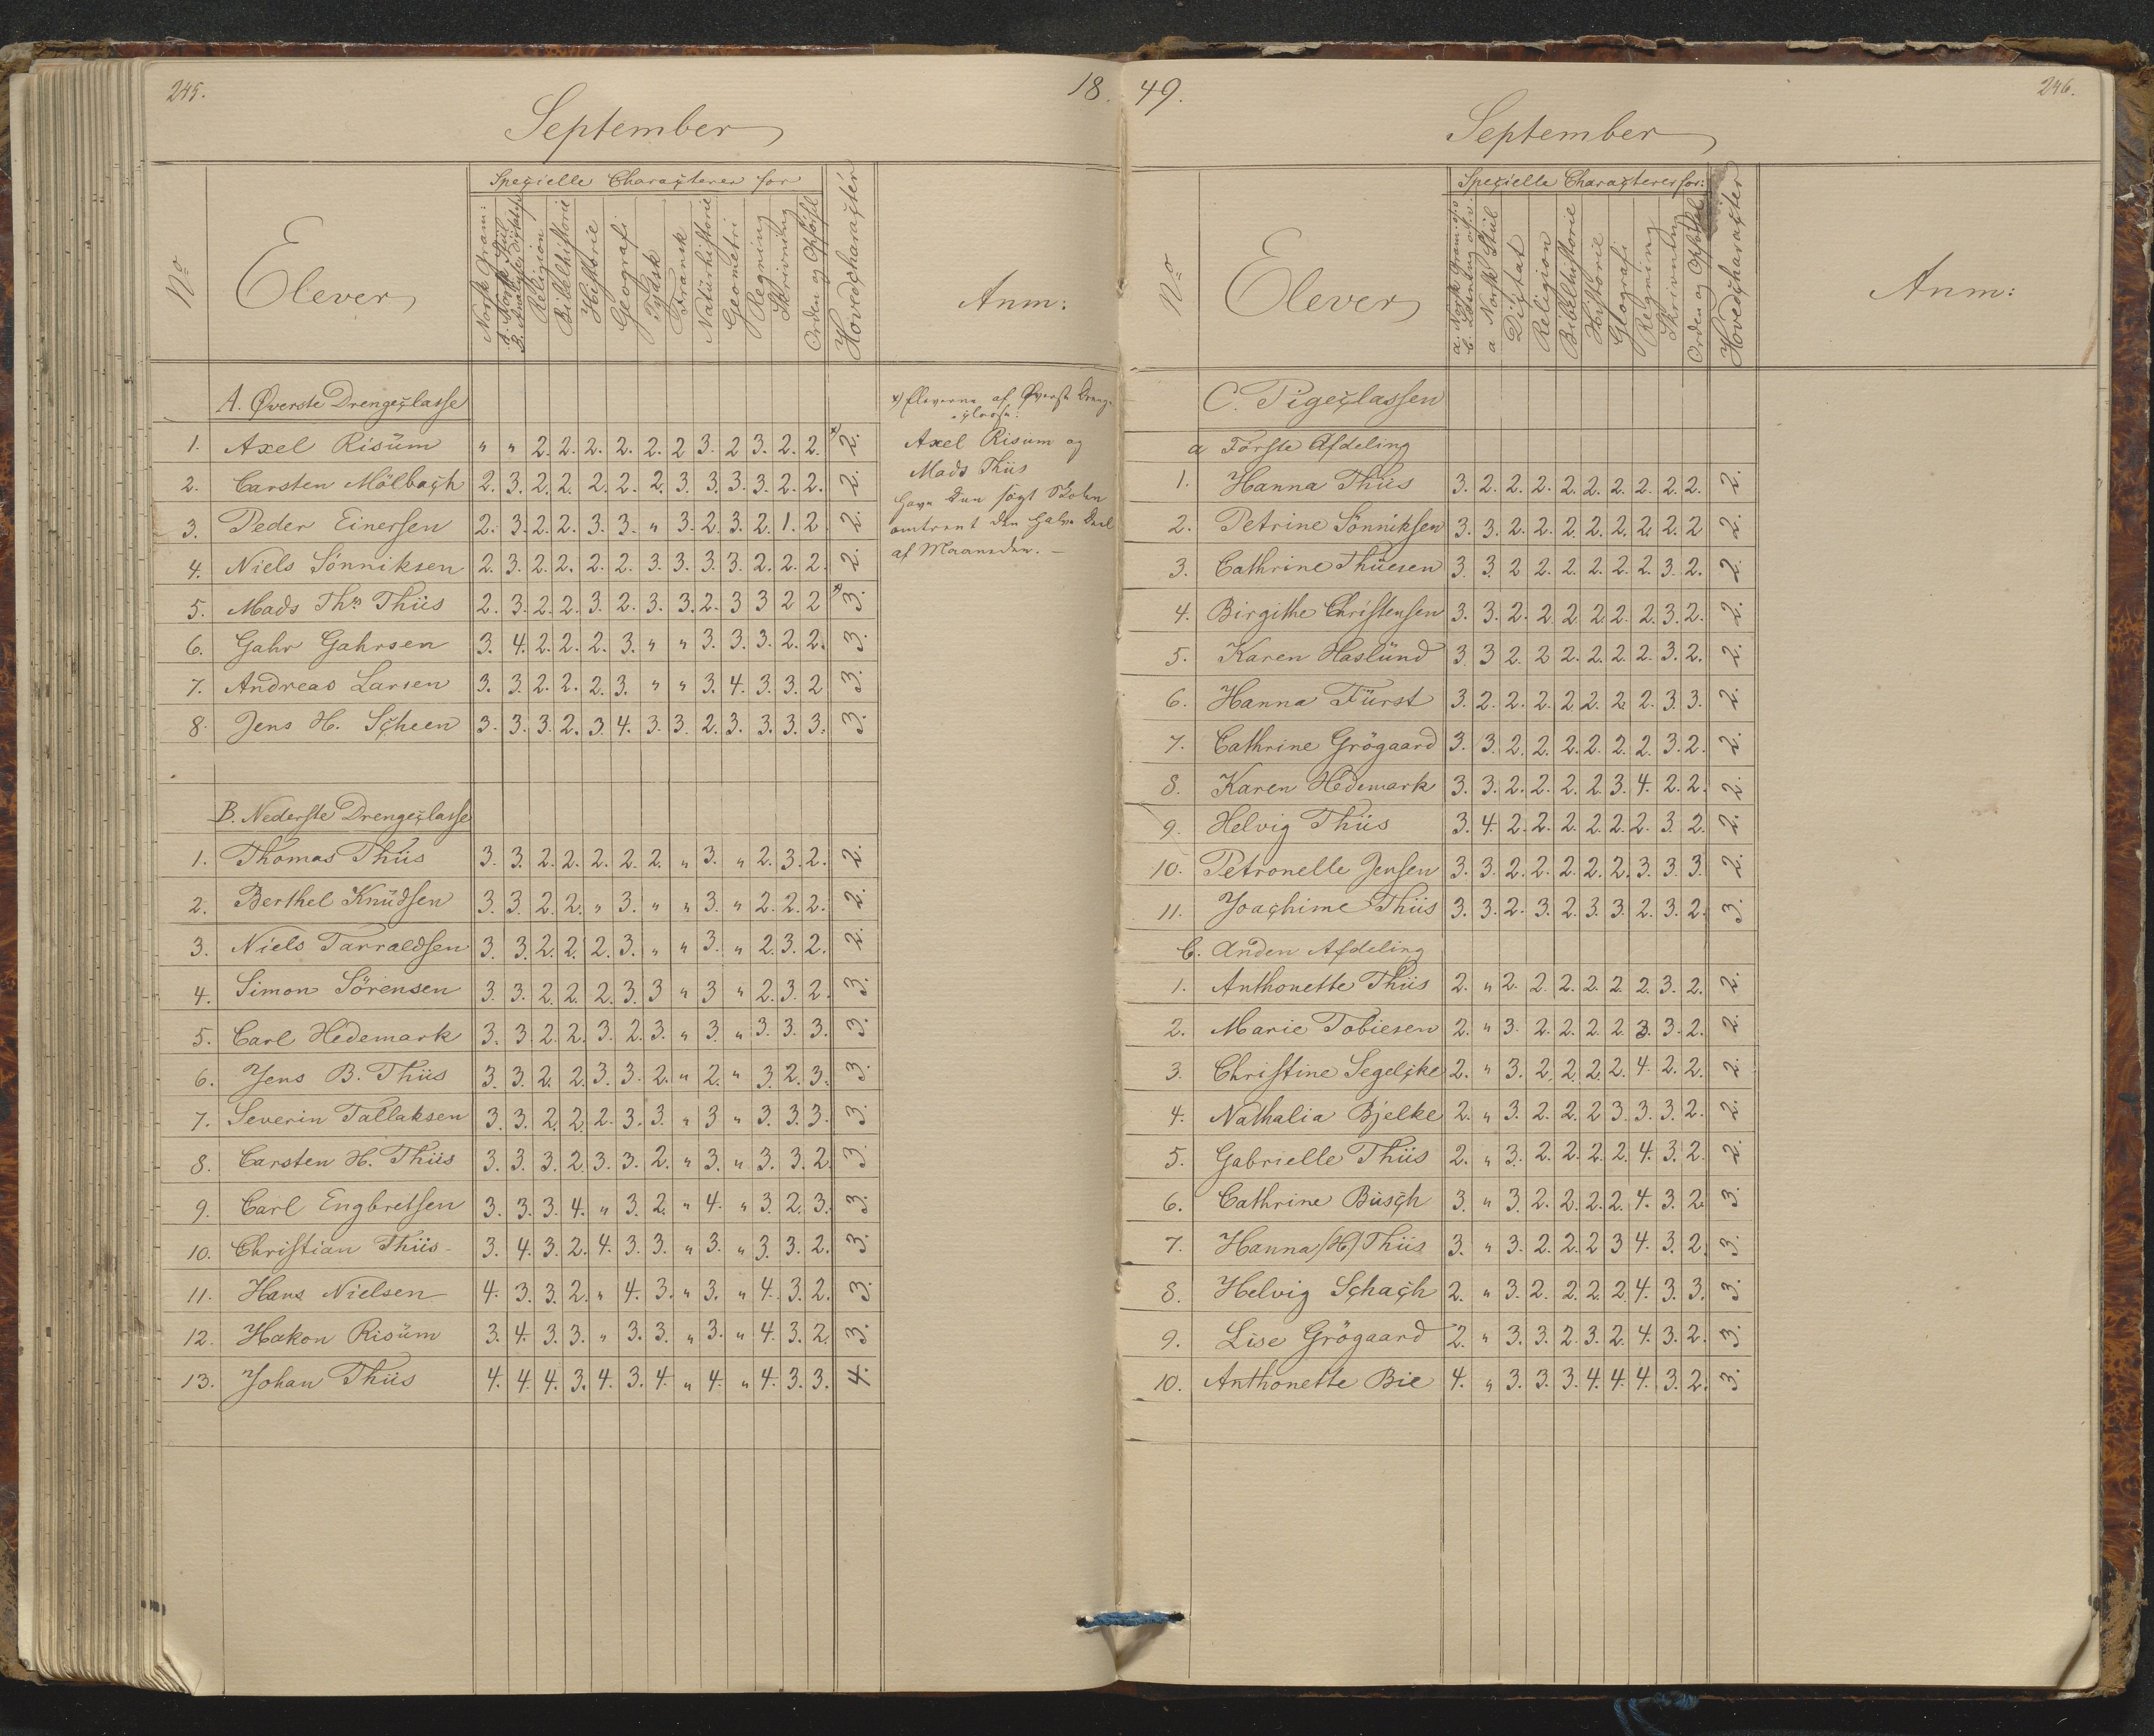 245.
18.
September
No
Elever
Specielle Characterer for
Norsk Gram:
A. Norsk Stiil
B. Analyse, Dictat
Religion
Bibelhistorie
Historie
Geografi
Tydsk
Fransk
Naturhistorie
Geometri
Regning
Skrivning
Orden og Opførsel
Hovedcharacter
Anm:
A. Øverste Drengeclasse
1. Axel Risüm " " 2. 2. 2. 2. 2. 2 3. 2 3. 2. 2. x) 2.
2. Carsten Mölbach 2. 3. 2. 2. 2. 2. 2. 3. 3. 3. 3. 2. 2. 2.
3. Peder Einersen 2. 3. 2. 2. 3. 3. " 3. 2. 3. 2. 1. 2. 2.
4. Niels Sönniksen 2. 3. 2. 2. 2. 2. 3. 3. 3. 3. 2. 2. 2. 2.
5. Mads Ths Thiis 2. 3. 2. 2. 3. 2. 3. 3. 2. 3 3 2 2 x) 3.
6. Gahr Gahrsen 3. 4. 2. 2. 2. 3. " " 3. 3. 3. 2. 2. 3.
7. Andreas Larsen 3. 3. 2. 2. 2. 3. " " 3. 4. 3. 3. 2 3.
8. Jens H. Scheen 3. 3. 3. 2. 3. 4. 3. 3. 2. 3. 3. 3. 3. 3.
x) Eleverne af Øverste Drenge-
classe:
Axel Risum og
Mads Thiis
have kun søgt Skolen
omtrent den halve Deel
af Maaneden. —
B. Nederste Drengeclasse
1. Thomas Thiis 3. 3. 2. 2. 2. 2. 2. " 3. " 2. 3. 2. 2.
2. Berthel Knüdsen 3. 3. 2. 2. " 3. " " 3. " 2. 2. 2. 2.
3. Niels Tarraldsen 3. 3. 2. 2. 2. 3. " " 3. " 2. 3. 2. 2.
4. Simon Sörensen 3. 3. 2. 2. 2. 3. 3 " 3 " 2. 3. 2. 3.
5. Carl Hedemark 3. 3. 2. 2. 3. 2. 3. " 3. " 3. 3. 3. 3.
6. Jens B. Thiis 3. 3. 2. 2. 3. 3. 2. " 2. " 3. 2. 3. 3.
7. Severin Tallaksen 3. 3. 2. 2. 2. 3. 3. " 3 " 3. 3. 3. 3.
8. Carsten H. Thiis 3. 3. 3. 2. 3. 3. 2. " 3. " 3. 3. 2. 3.
9. Carl Engbretsen 3. 3. 3. 4. " 3. 2. " 4. " 3. 2. 3. 3.
10. Christian Thiis 3. 4. 3. 2. 4. 3. 3. " 3. " 3. 3. 2. 3.
11. Hans Nielsen 4. 3. 3. 2. " 4. 3. " 3. " 4. 3. 2. 3.
12. Hakon Risüm 3. 4. 3. 3. " 3. 3. " 3. " 4. 3. 2. 3.
13. Johan Thiis 4. 4. 4. 3. 4. 3. 4. " 4. " 4. 3. 3. 4.
49.
246.
September
No
Elever
Specielle Characterer for:
a. Norsk Gram. osv
b. Læsning osv.
a Norsk Stiil
Dictat
Religion
Bibelhistorie
Historie
Geografi
Regning
Skrivning
Orden og Opførsel
Hovedcharacter
Anm:
C. Pigeclassen
a Förste Afdeling
1. Hanna Thiis 3. 2. 2. 2. 2. 2. 2. 2. 2. 2. 2.
2. Petrine Sönniksen 3. 3. 2. 2. 2. 2. 2. 2. 2. 2 2.
3. Cathrine Thüesen 3. 3. 2 2. 2. 2. 2. 2. 3. 2. 2.
4. Birgithe Christensen 3. 3. 2. 2. 2. 2. 2. 2. 3. 2. 2.
5. Karen Haslünd 3. 3 2. 2 2. 2. 2. 2. 3. 2. 2.
6. Hanna Fürst 3. 2. 2. 2. 2. 2. 2. 2. 3. 3. 2.
7. Cathrine Grögaard 3. 3. 2. 2. 2. 2. 2. 2. 3. 2. 2.
8. Karen Hedemark 3. 3. 2. 2. 2. 2. 3. 4. 2. 2. 2.
9. Helvig Thiis 3. 4. 2. 2. 2. 2. 2. 2. 3. 2. 2.
10. Petronelle Jensen 3. 3. 2. 2. 2. 2. 2. 3. 3. 3. 2.
11. Joachime Thiis 3. 3. 2. 3. 2. 3. 3. 2. 3. 2. 3.
b. Anden Afdeling
1. Anthonette Thiis 2. " 2. 2. 2. 2. 2. 2. 3. 2. 2.
2. Marie Tobiesen 2. " 3. 2. 2. 2. 2. 3. 3. 2. 2.
3. Christine Segelcke 2. " 3. 2. 2. 2. 2. 4. 2. 2. 2.
4. Nathalia Bjelke 2. " 3. 2. 2. 2. 3. 3. 3. 2. 2.
5. Gabrielle Thiis 2. " 3. 2. 2. 2. 2. 4. 3. 2. 2.
6. Cathrine Busch 3. " 3. 2. 2. 2. 2. 4. 3. 2. 3.
7. Hanna (H) Thiis 3. " 3. 2. 2. 2 3 4. 3. 2. 3.
8. Helvig Schach 2. " 3. 2. 2. 2. 2. 4. 3. 3. 3.
9. Lise Grögaard 2. " 3. 3. 2. 3. 2. 4. 3. 2. 3.
10. Anthonette Bie 4. " 3. 3. 3. 4. 4. 4. 3. 2. 3.